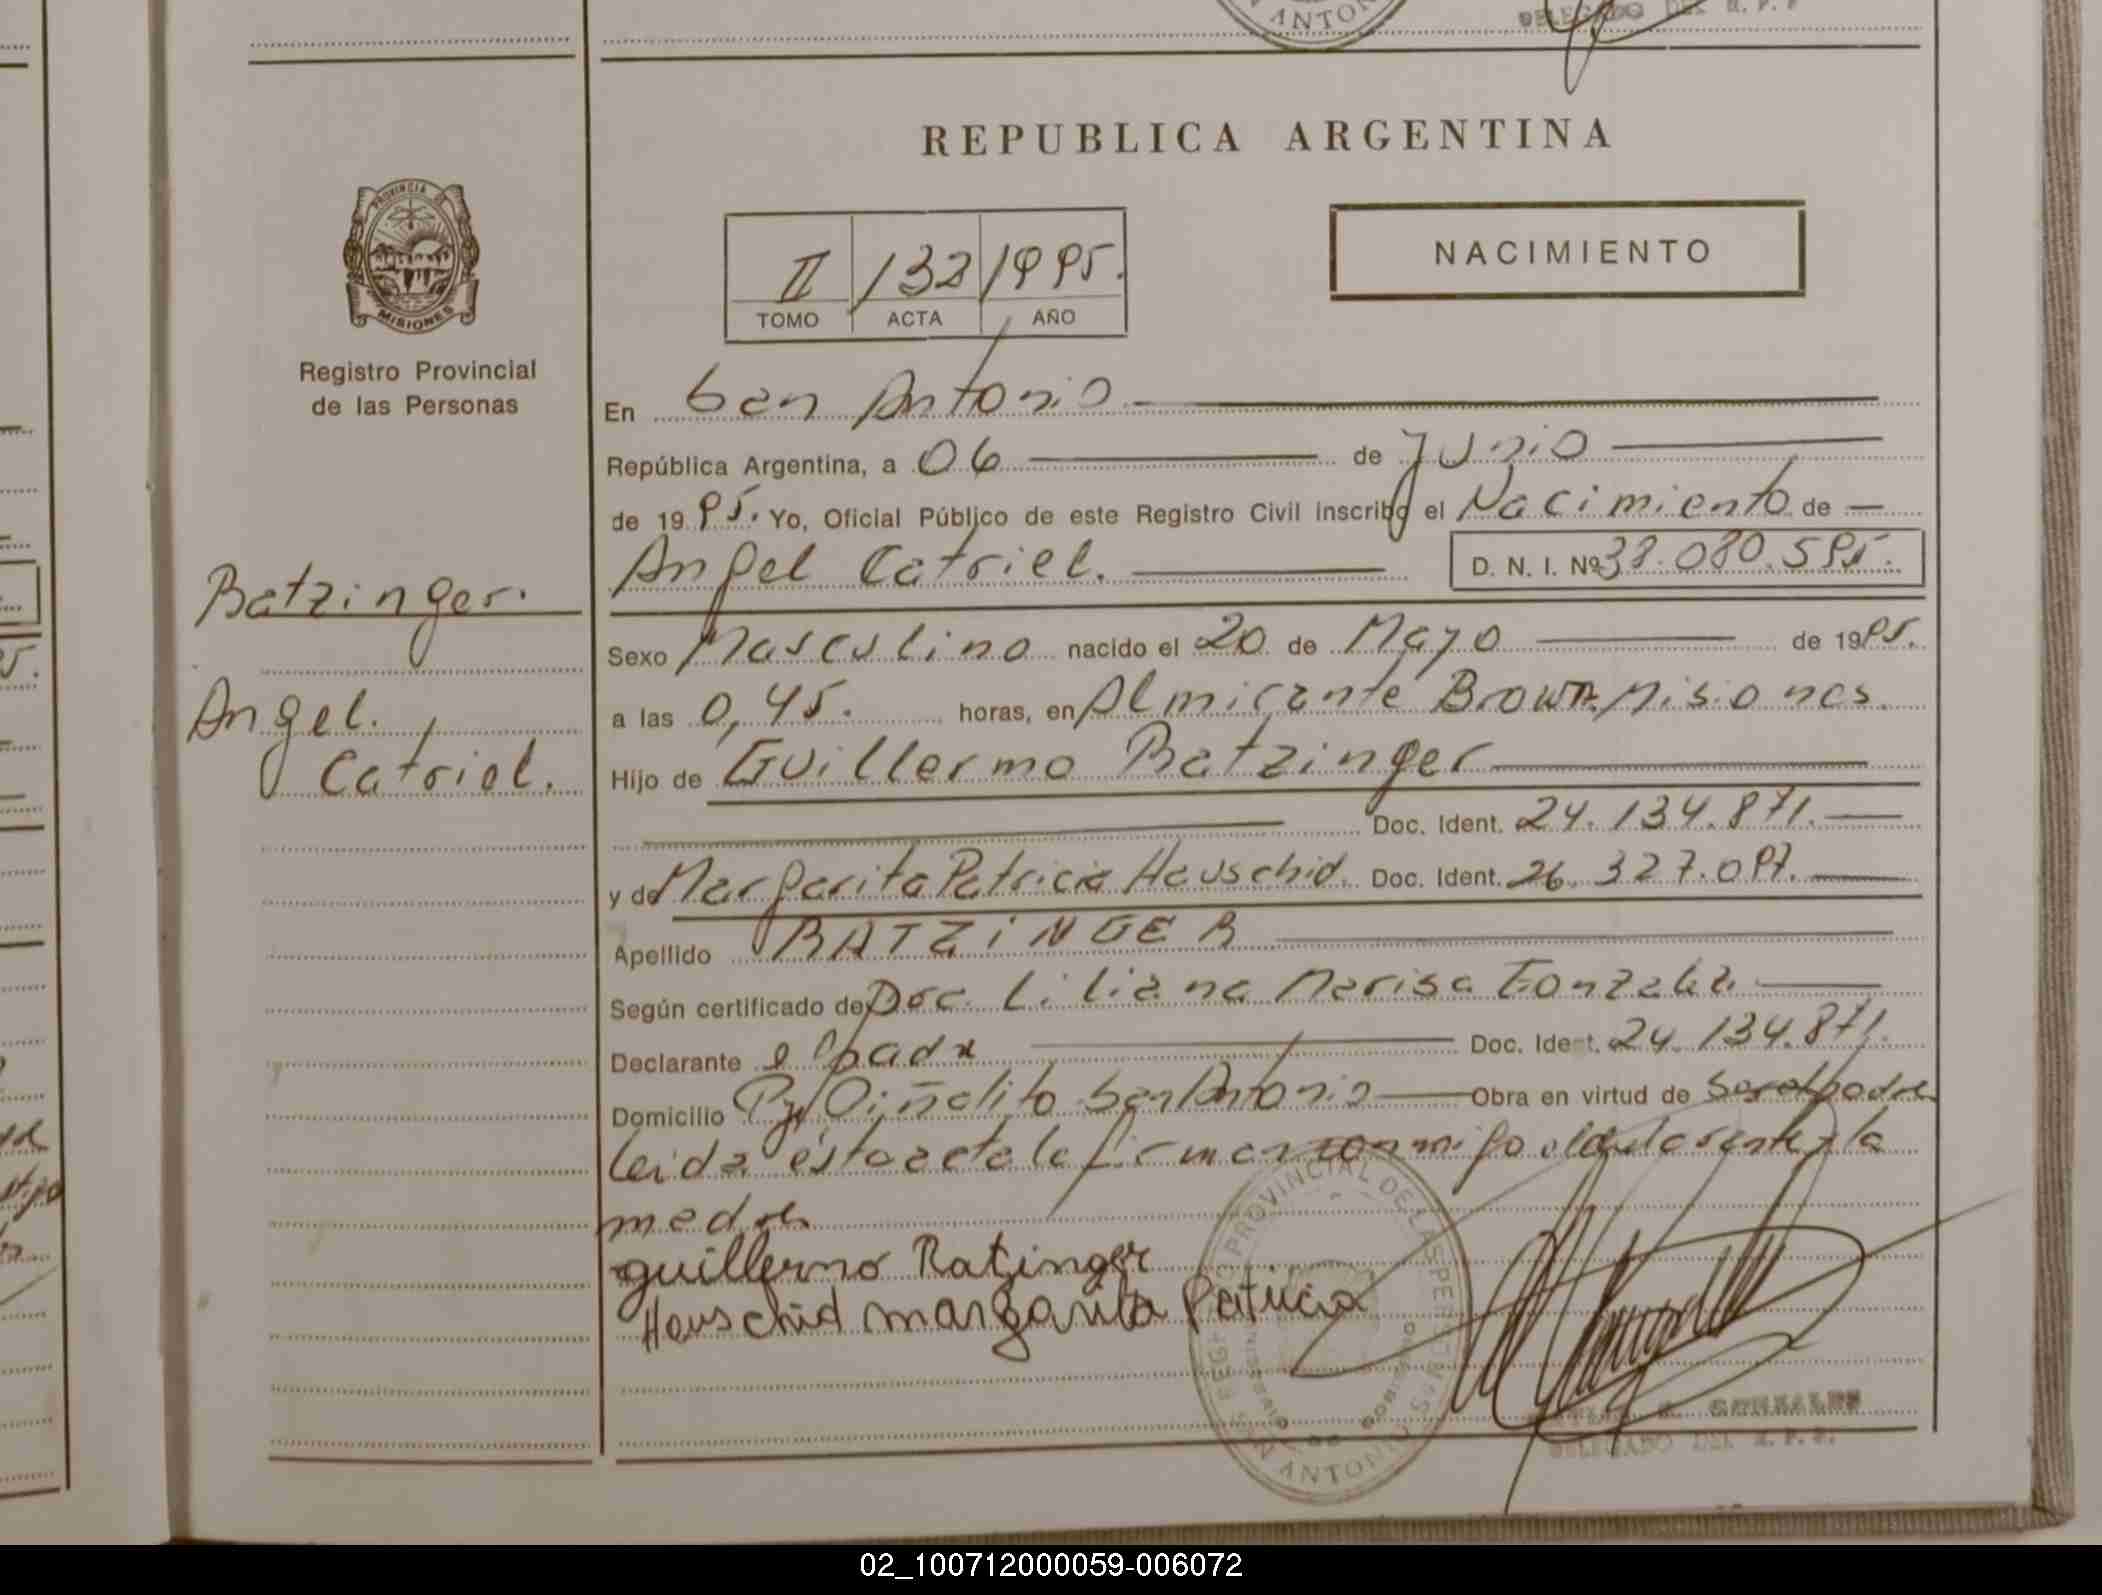 REPUBLICA ARGENTINA
PROVINCIA DE
MISIONES
Registro Provincial
de las Personas
II 132 1995.
TOMO ACTA AÑO
NACIMIENTO
En San Antonio
República Argentina, a 06 de Junio
de 1995. Yo, Oficial Público de este Registro Civil inscribo el Nacimiento de
Angel Catriel. D. N. I. Nº 38.080.595.
Ratzinger.
Angel.
Catriel.
Sexo Masculino nacido el 20 de Mayo de 1995.
a las 0,45. horas, en Almirante Brown. Misiones.
Hijo de Guillermo Ratzinger
Doc. Ident. 24.134.871.
y de Margarita Patricia Hauschid. Doc. Ident. 26.327.097.
Apellido RATZINGER
Según certificado de Doc. Liliana Marisa Gonzalez
Declarante el padre Doc. Ident. 24.134.871.
Domicilio Piñalito San Antonio Obra en virtud de Ser el padre
leida ésta acta la firman conmigo el declarante y la
madre
guillermo Ratzinger
Hauschid margarita Patricia
REGISTRO PROVINCIAL DE LAS PERSONAS
SAN ANTONIO
GONZALES
DELEGADO DEL R. P. P.
02_100712000059-006072